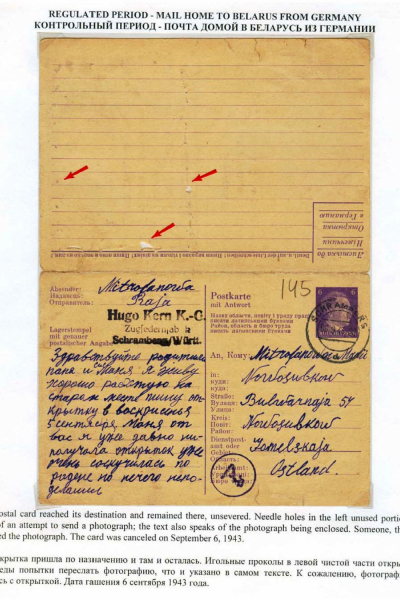 REGULATED PERIOD - MAIL HOME TO BELARUS FROM GERMANY
КОНТРОЛЬНЫЙ ПЕРИОД - ПОЧТА ДОМОЙ В БЕЛАРУСЬ ИЗ ГЕРМАНИИ
Absender: Mitrofanowa
Отправитель: Raja
Hugo Kern K.-G.
Zugfedernfabrik
Schramberg/Württ.
Lagerstempel
mit genauer
postalischer Angabe
Здравствуйте родители
папа и Маня я живу
хорошо работую на
старом месте пишу от
крытку в воскрисеня
5 сентября Маня от
вас я уже давно ни
получала открыток уже
очень соскучилась по
родене но нечего непо
делаиш
Postkarte
mit Antwort
145
6
SCHRAMBERG
An, Кому: Mitrofanowa
in: Nowosubkow
Straße: Bulwarnaja 57
Kreis: Nowosubkow
Dienstpost-
amt oder Gomelskaja
Gebiet: Ostland.
ostal card reached its destination and remained there, unsevered. Needle holes in the left unused portio
of an attempt to send a photograph; the text also speaks of the photograph being enclosed. Someone, th
ed the photograph. The card was canceled on September 6, 1943.
крытка пришла по назначению и там и осталась. Игольные проколы в левой чистой части откры
еды попытки переслать фотографию, что и указано в самом тексте. К сожалению, фотограф
сь с открыткой. Дата гашения 6 сентября 1943 года.